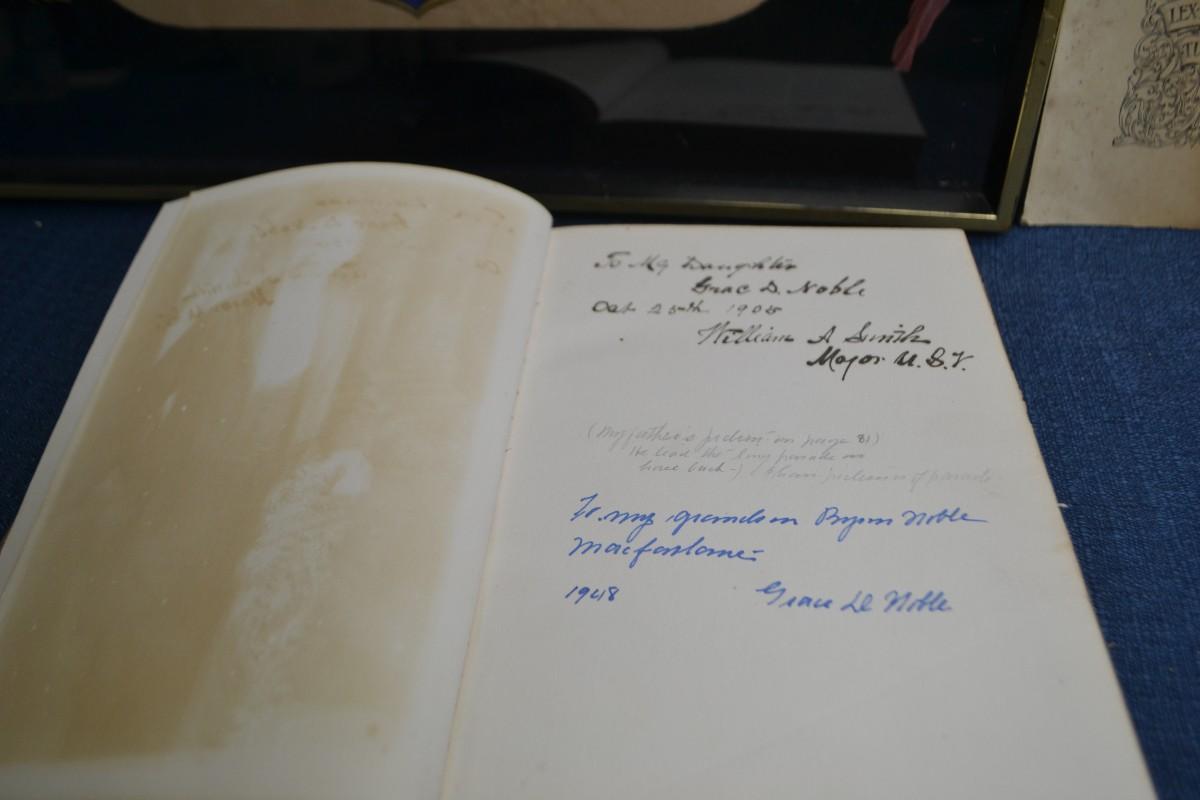 To My Daughter
Grac D. Noble
Oct 25th 1905
William A Smith
Major U.S.V.
(My father's picture on page 81)
He lead the long parade on
horse back-) picture of parade
To my grandson Byron Noble
Macfarlane-
1948 Grace D Noble
LEX